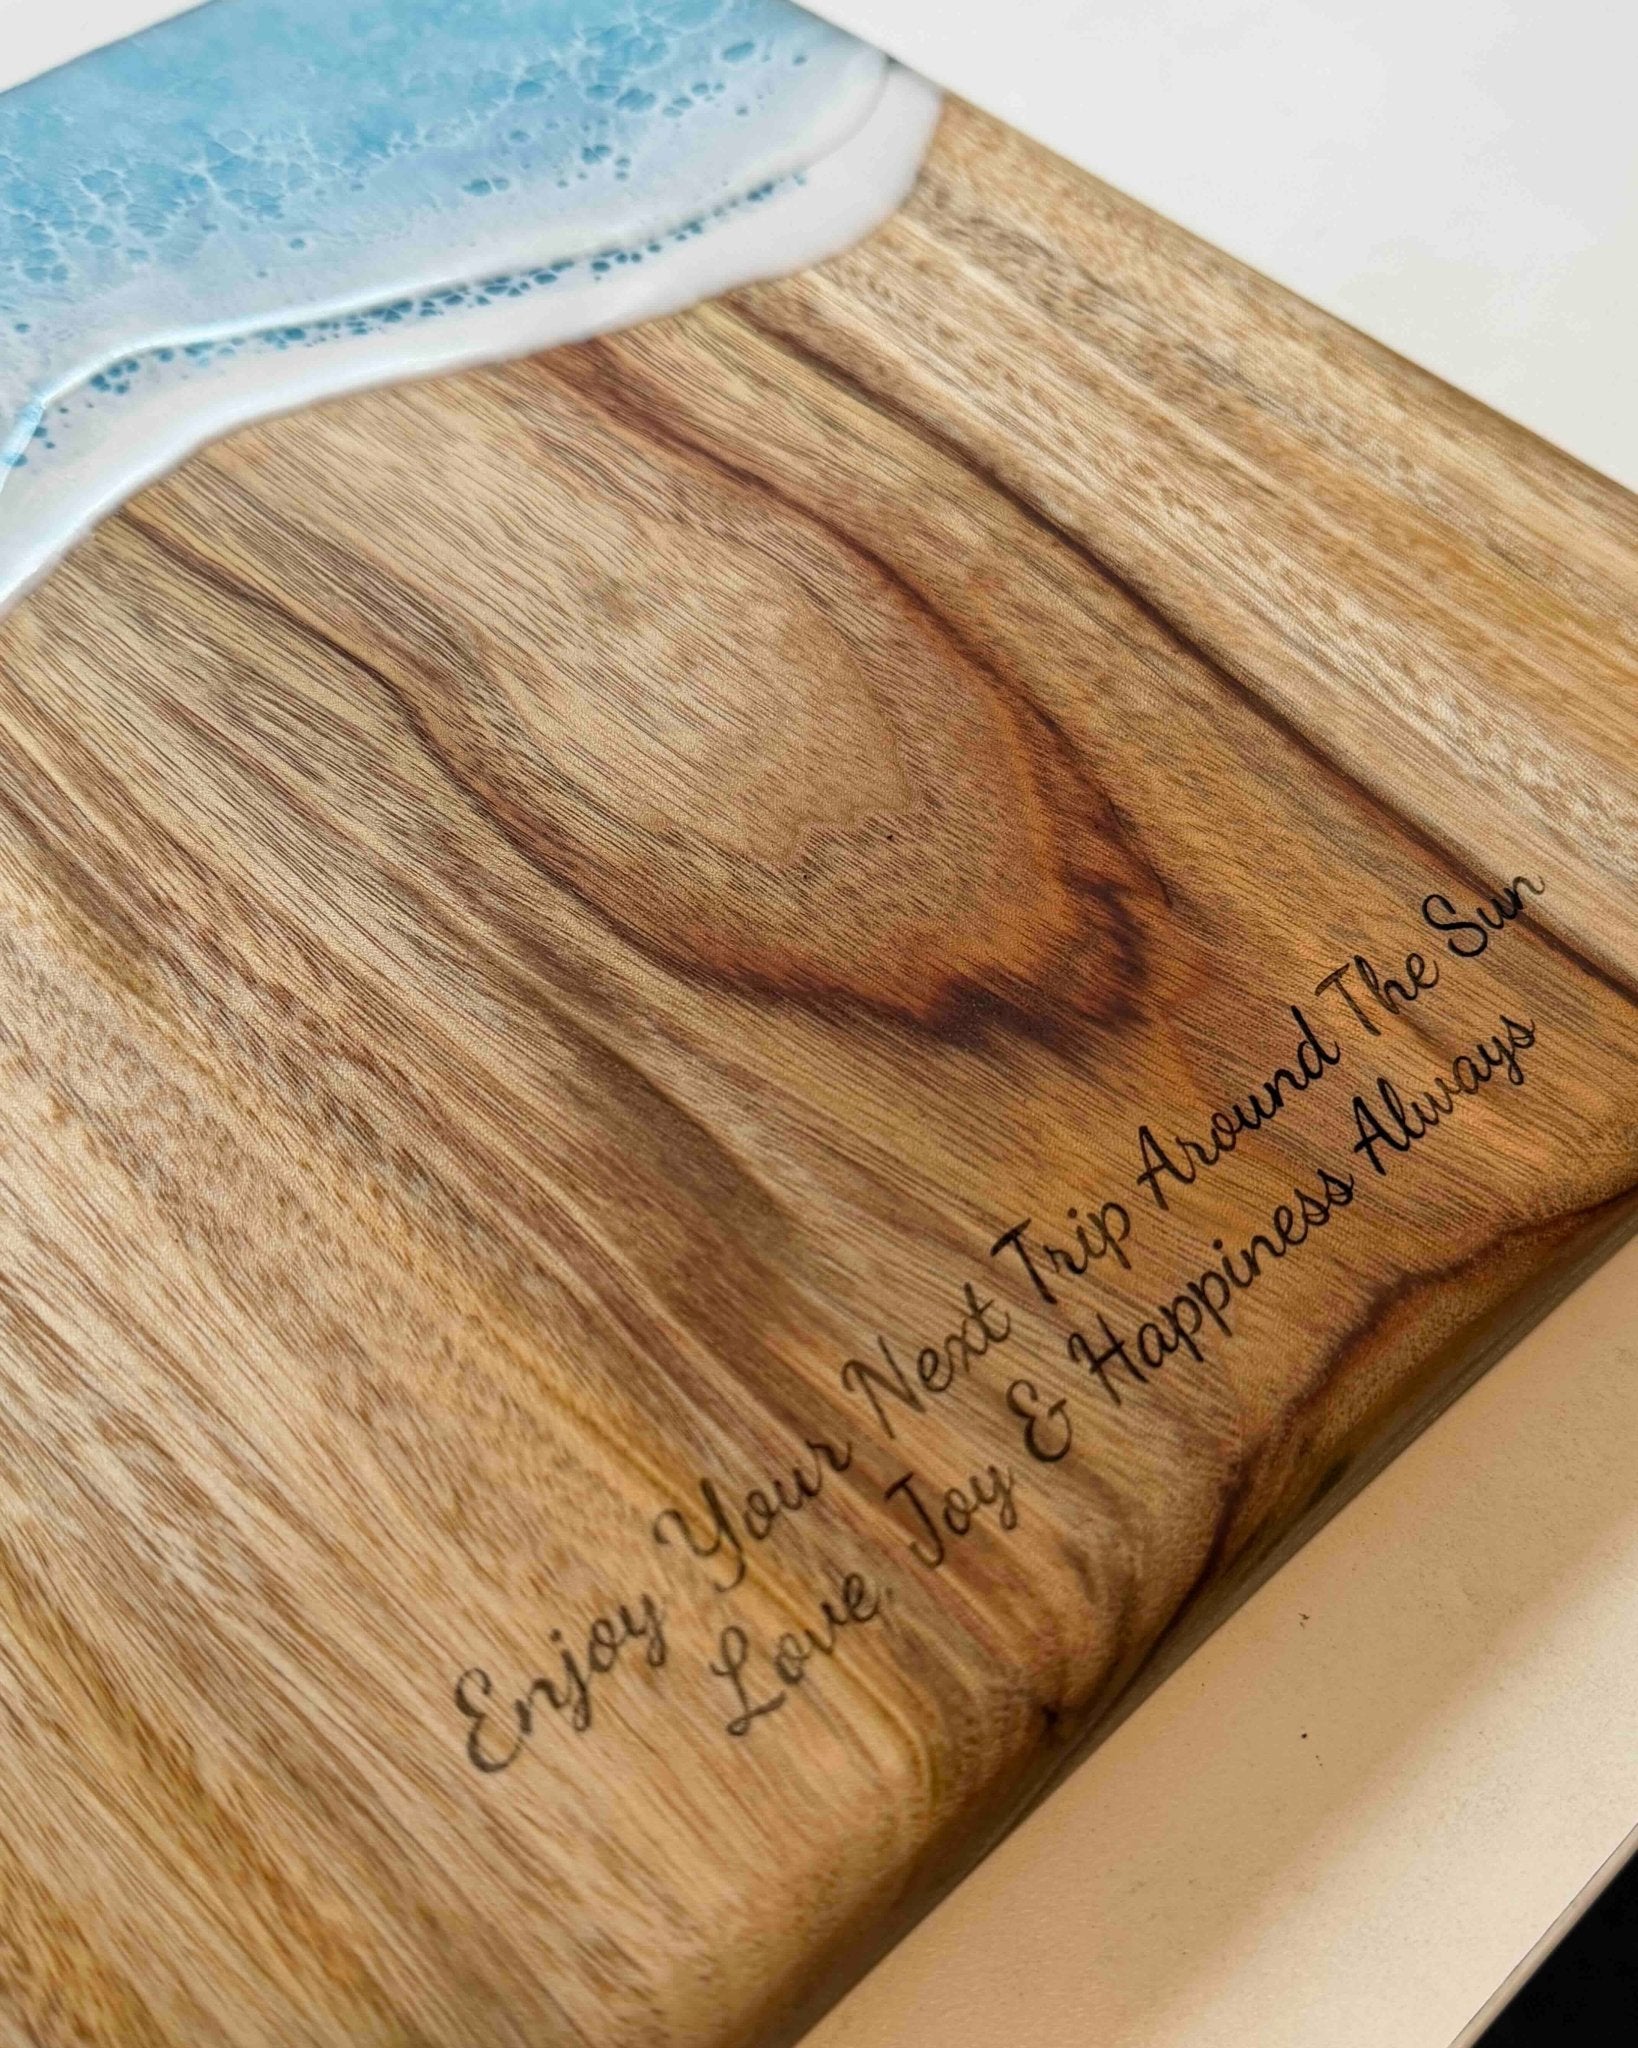 Enjoy Your Next Trip Around The Sun
Love, Joy & Happiness Always